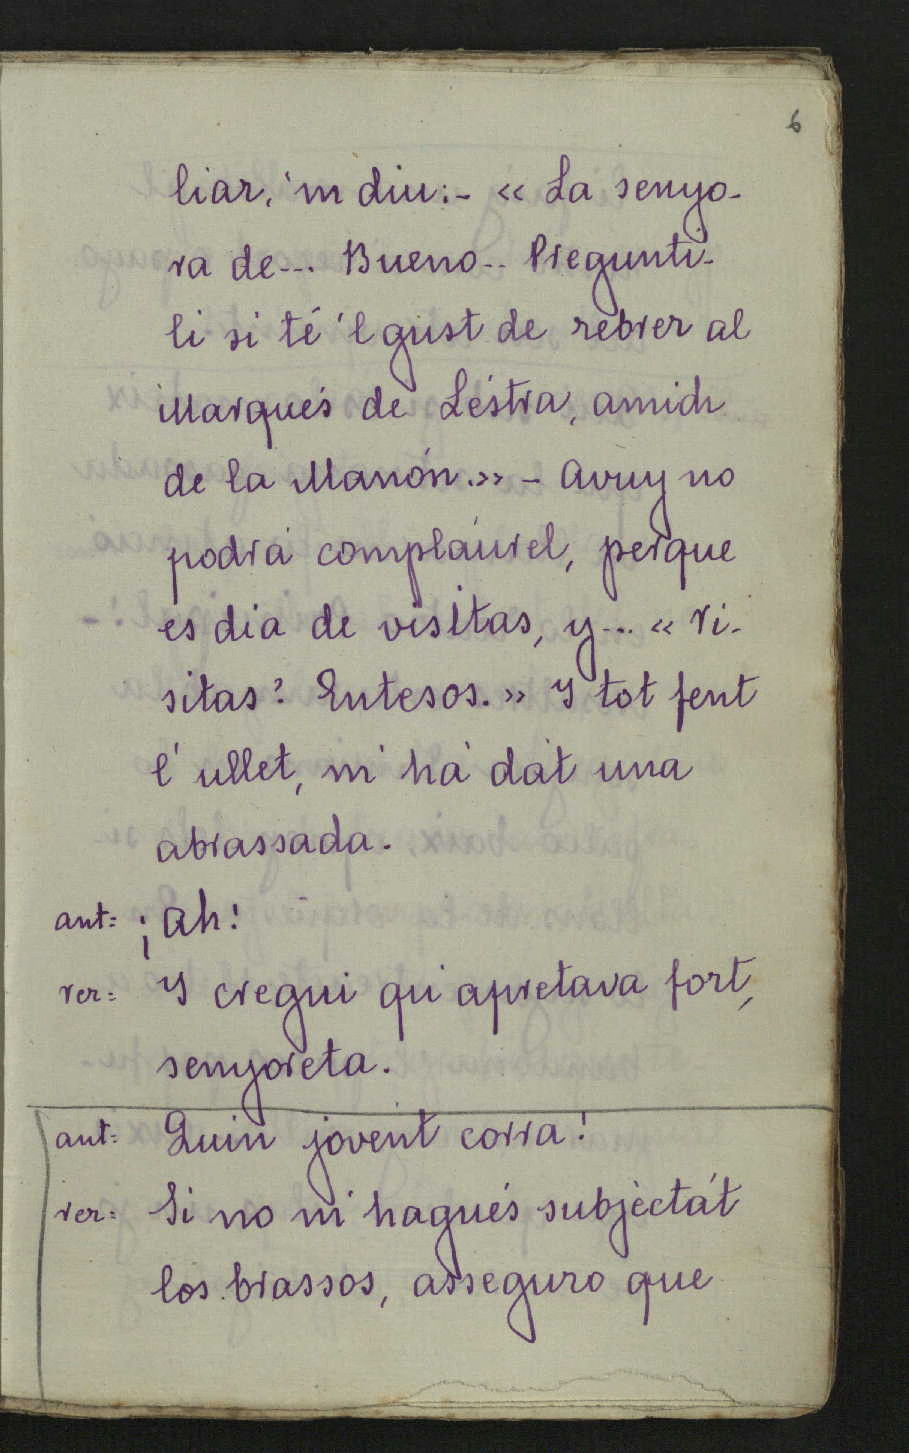 6
liar, 'm diu:- « La senyo-
ra de--. Bueno-- Pregunti-
li si té 'l gust de rebrer al
Marqués de Léstra, amich
de la Manón.» - Avuy no
podrá complaurel, perque
es dia de visitas, y... « Vi-
sitas? Entesos.» Y tot fent
l' ullet, m' há dat una
abrassada.
ant= ¡Ah!
ver= Y cregui qu' apretava fort,
senyoreta.
ant= Quin jovent corra!
ver= Si no m' hagués subjectát
los brassos, asseguro que